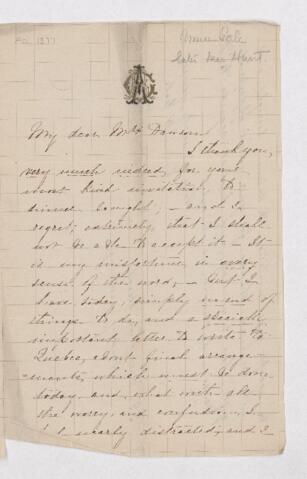 My dear Mrs Dawson
I thank you,
very much indeed, for your
most kind invitation, to
dinner tonight; — and I
regret, extremely, that I shall
not be able to accept it — It
is my misfortune, in every
sense of the word, — But I
have today, simply no end of
things to do, and a special,
important letter to write to
Quebec, about final arrange-
-ments, which must be done
today, and what with all
the worry, and confusion, I
nearly distracted, and I